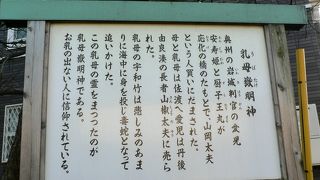 乳母嶽明神
うばだけ
奥州の岩城判官の愛児
安寿姫と厨子王丸が
応化の橋のたもとで、山岡太夫
という人買いにだまされた。
母と乳母は佐渡へ愛児は丹後
由良湊の長者山椒太夫に売ら
れた。
乳母の宇和竹は悲しみのあま
り海中に身を投じ毒蛇となって
追いかけた。
この乳母の霊をまつったのが
乳母嶽明神である。
お乳の出ない人に信仰されている。